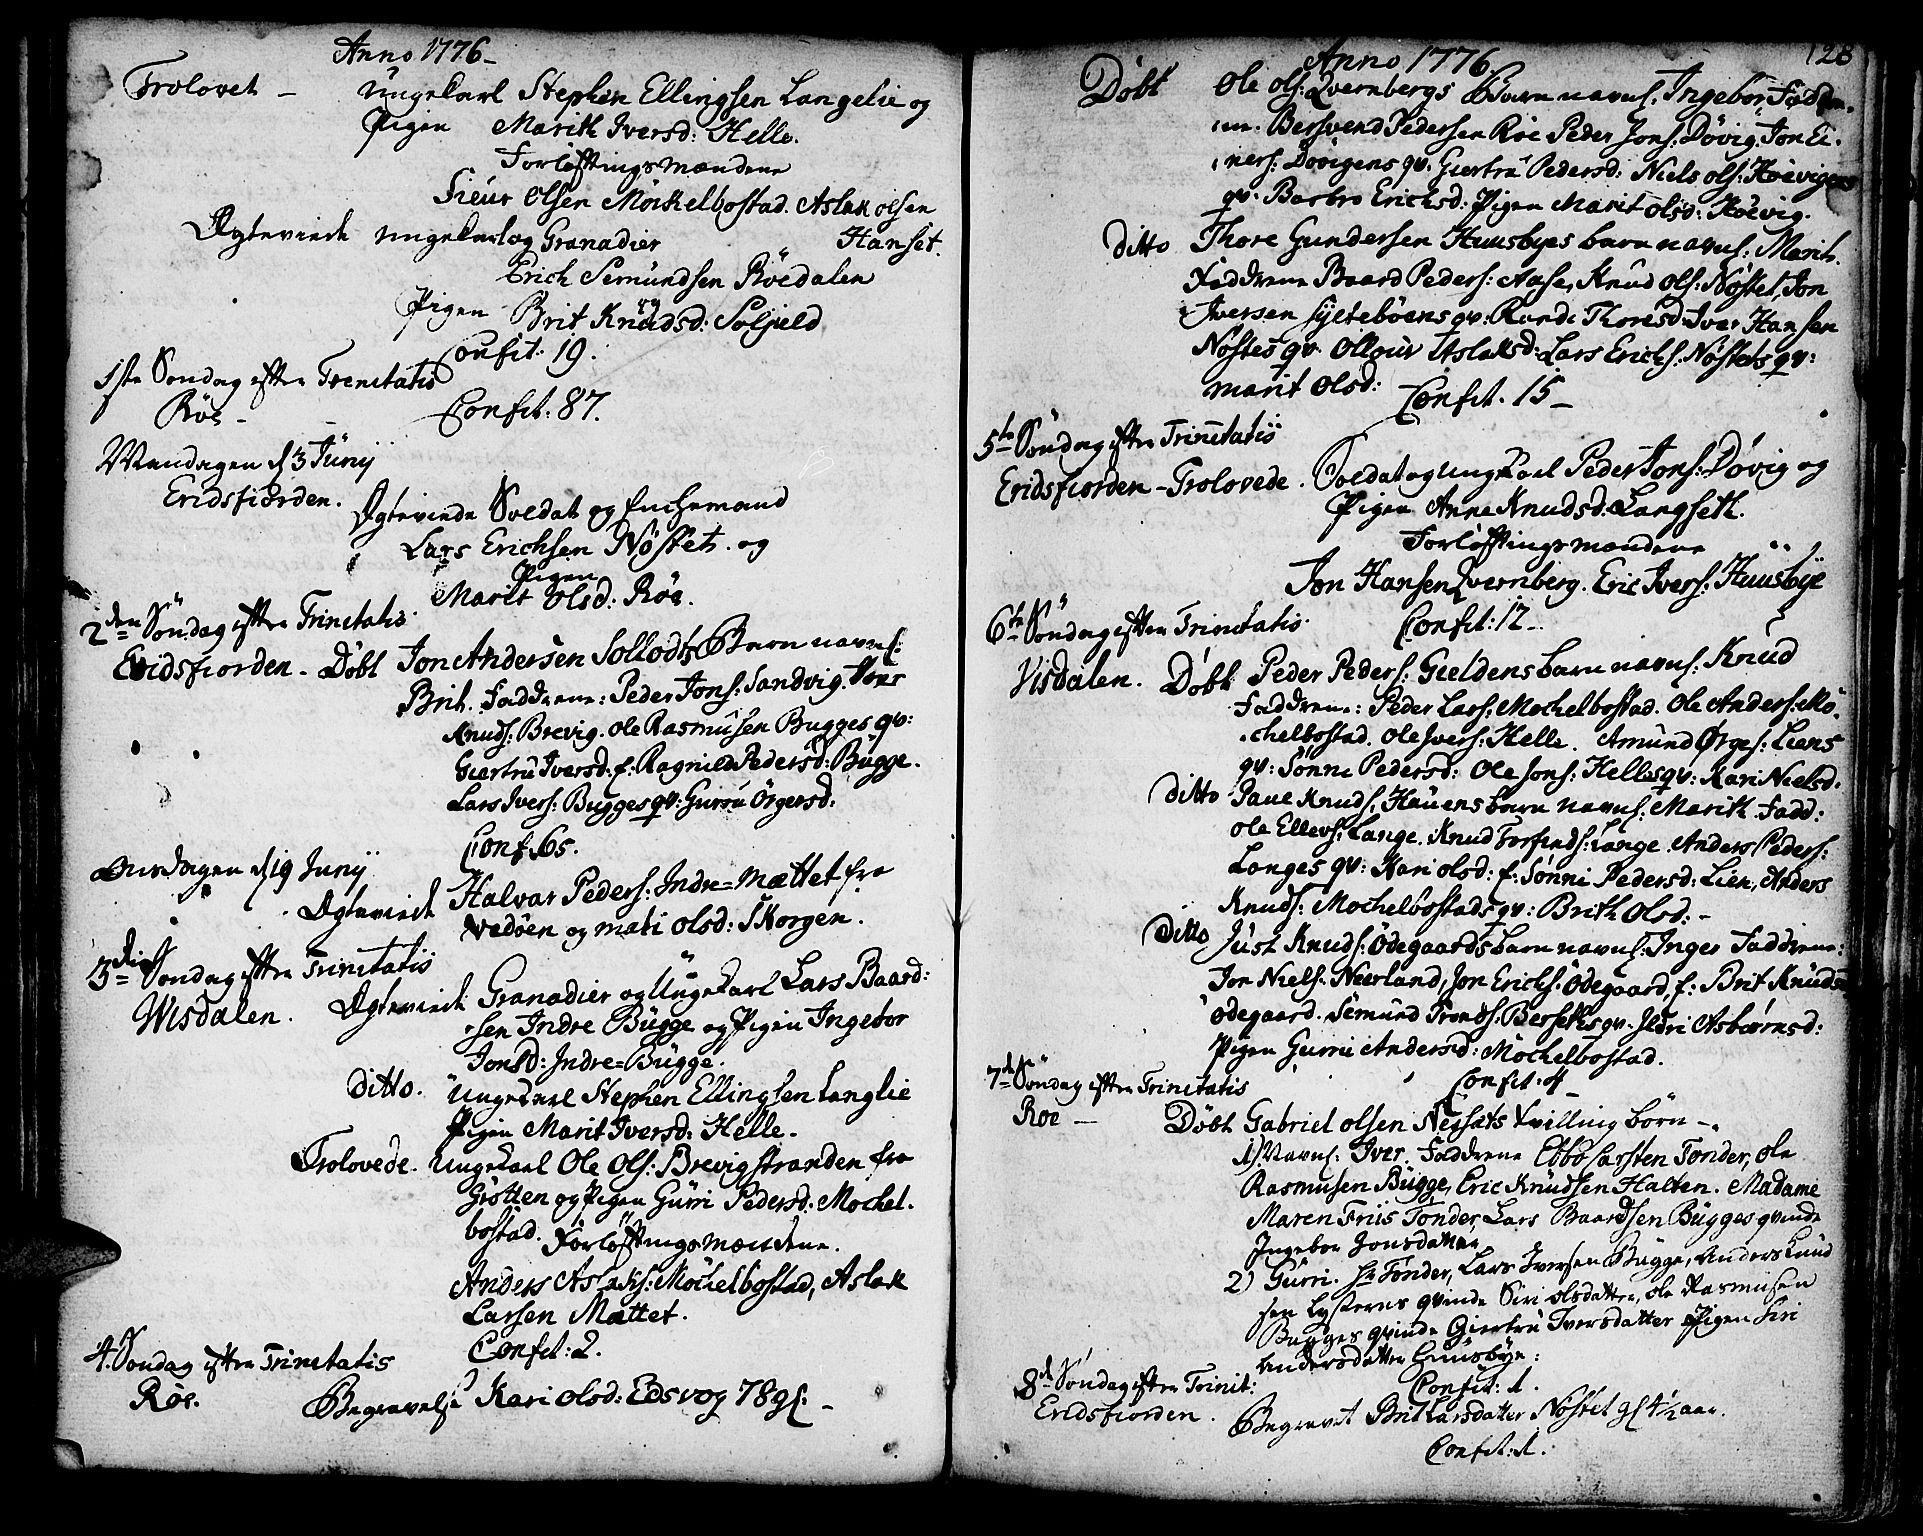 Anno 1776
Trolovet – Ungekarl Stephen Ellingsen Langelie og
Pigen Marith Iversd: Helle.
Forløftningsmændene
Sieur Olsen Möckelbostad. Aslak olsen
Hanset.
Ægteviede ungekarl og Granadier
Erich Semundsen Röedalen
Pigen Brit Knudsd: Soljeld
Confit. 19.
1ste Søndag efter Trenitatis
Röe – Confit: 87.
Mandagen d 3 Junij
Eridsfiorden. Ægteviede Soldat og Enchemand
Lars Erichsen Nöstet. og
Pigen
Marit Olsd: Röe.
2den Søndag efter Trinitatis
Eridsfiorden – Döbt Jon Andersen Sollods Barn navnl:
Brit. Faddrene: Peder Jons: Sandvig.
Knuds: Brevig. Ole Rasmusen Bugges qv:
Giertru Iversd: f: Ragnild Pedersd: Bugge.
Lars Ivers: Bugges qv: Gurru Örgersd:
Conf. 65.
Onsdagen d 19 Junij
Ægteviede Halvar Peders: Indre=Mættet fra
Vedöen og mati olsd: Skorgen.
3die Søndag efter Trinitatis
Wisdalen. Ægteviede Granadier og Ungekarl Lars Baard:
sen Indre Bugge og Pigen Ingebor
Jonsd: Indre=Bugge.
Ditto. Ungekarl Stephen Ellingsen Langlie
Pigen Marit Iversd: Helle.
Trolovede. Ungekarl Ole Ols: Brevigstranden fra
Grötten og Pigen Gurri Pedersd: Mochel.
bostad. Forløftningsmændene.
Anders Aslaks: Möchelbostad, Aslak
Larsen Mættet.
Confit: 2.
4. Søndag efter Trinitatis
Röe. Begravelse Kari olsd: Edsvog 78 gl. –
128
Anno 1776
Döbt Ole ols: Qvernbergs Barn navnl. Ingebor Faddre.
ne. Bersvend Pedersen Röe Peder Jons: Dövig, Jon Ei.
ners: Dövigens qv. Giertru Pedersd: Niels ols: Höevigens
qv. Barbro Erichsd: Pigen Marit olsd: Höevig.
Ditto Thore Gundersen Huusbyes barn navnl: Marit.
Faddrene Baard Peders: Aase, Knud Ols: Nöstet, Jon
Iversen Sylteböens qv: Randi Thoresd: Iver Hansen
Nöstes qv. Ollour Aslaksd: Lars Erichs: Nöstets qv:
marit Olsd: Confit. 15 –
5te Søndag efter Trinitatis
Eridsfiorden – Trolovede. Soldat og ungkarl Peder Jons: Dövig og
Pigen Anne Knudsd: Langseth.
Forløftningsmændene
Jon Hansen Qvernberg. Eric Ivers: Huusbye
Confit: 12 –
6te Søndag efter Trinitatis.
Visdalen. Döbt Peder Peders: Gieldens barn navnl: Knud
Faddrene: Peder Lars: Mochelbostad. Ole Anders: Mö.
chelbostad. Ole Ivers: Helle. Amund Örges: Liens
qv: Sönni Pedersd: Ole Jons: Helles qv: Kari Nielsd.
Ditto Paue Knuds: Hauens barn navnl: Marith. Fadd:
Ole Ellevs: Lange. Knud Torfinds: Lange. Anders Peders:
Langes qv: Kari olsd: f: Sönni Pedersd: Lien, Anders
Knuds: Mochelbostads qv: Brith Olsd: –
Ditto Just Knuds: Ödegaards barn navnl. Inger Faddrene:
Jon Niels: Neerland, Jon Erichs: Ödegaard, f: Brit Knudsd
Ödegaard. Semund Tronds: Bersethes qv. Jldri Asbiörnsd:
Pigen Gurru Andersd: Möchelbostad.
Confit:
7de Søndag efter Trinitatis
Röe – Döbt Gabriel Olsen Nessets tvilling börn –
1) Navnl. Iver. Faddrene Ebbo Carsten Tonder, Ole
Rasmusen Bugge, Eric Knudsen Halten. Madame
Maren Friis Tonder, Lars Baardsen Bugges qvinde
Ingebor Jonsdatter
2) Gurri. Hr Tonder, Lars Iversen Bugge, Anders Knud
sen Lysternes qvinde Siri olsdatter, ole Rasmusen
Bugges qvinde Giertru Iversdatter Pigen Siri
Andersdatter Huusbye:
Confit: 1.
8de Søndag efter Trinit:
Eridsfiorden. Begravet Brit Larsdatter Nöstet gl 4½ aar.
Confit: 1.